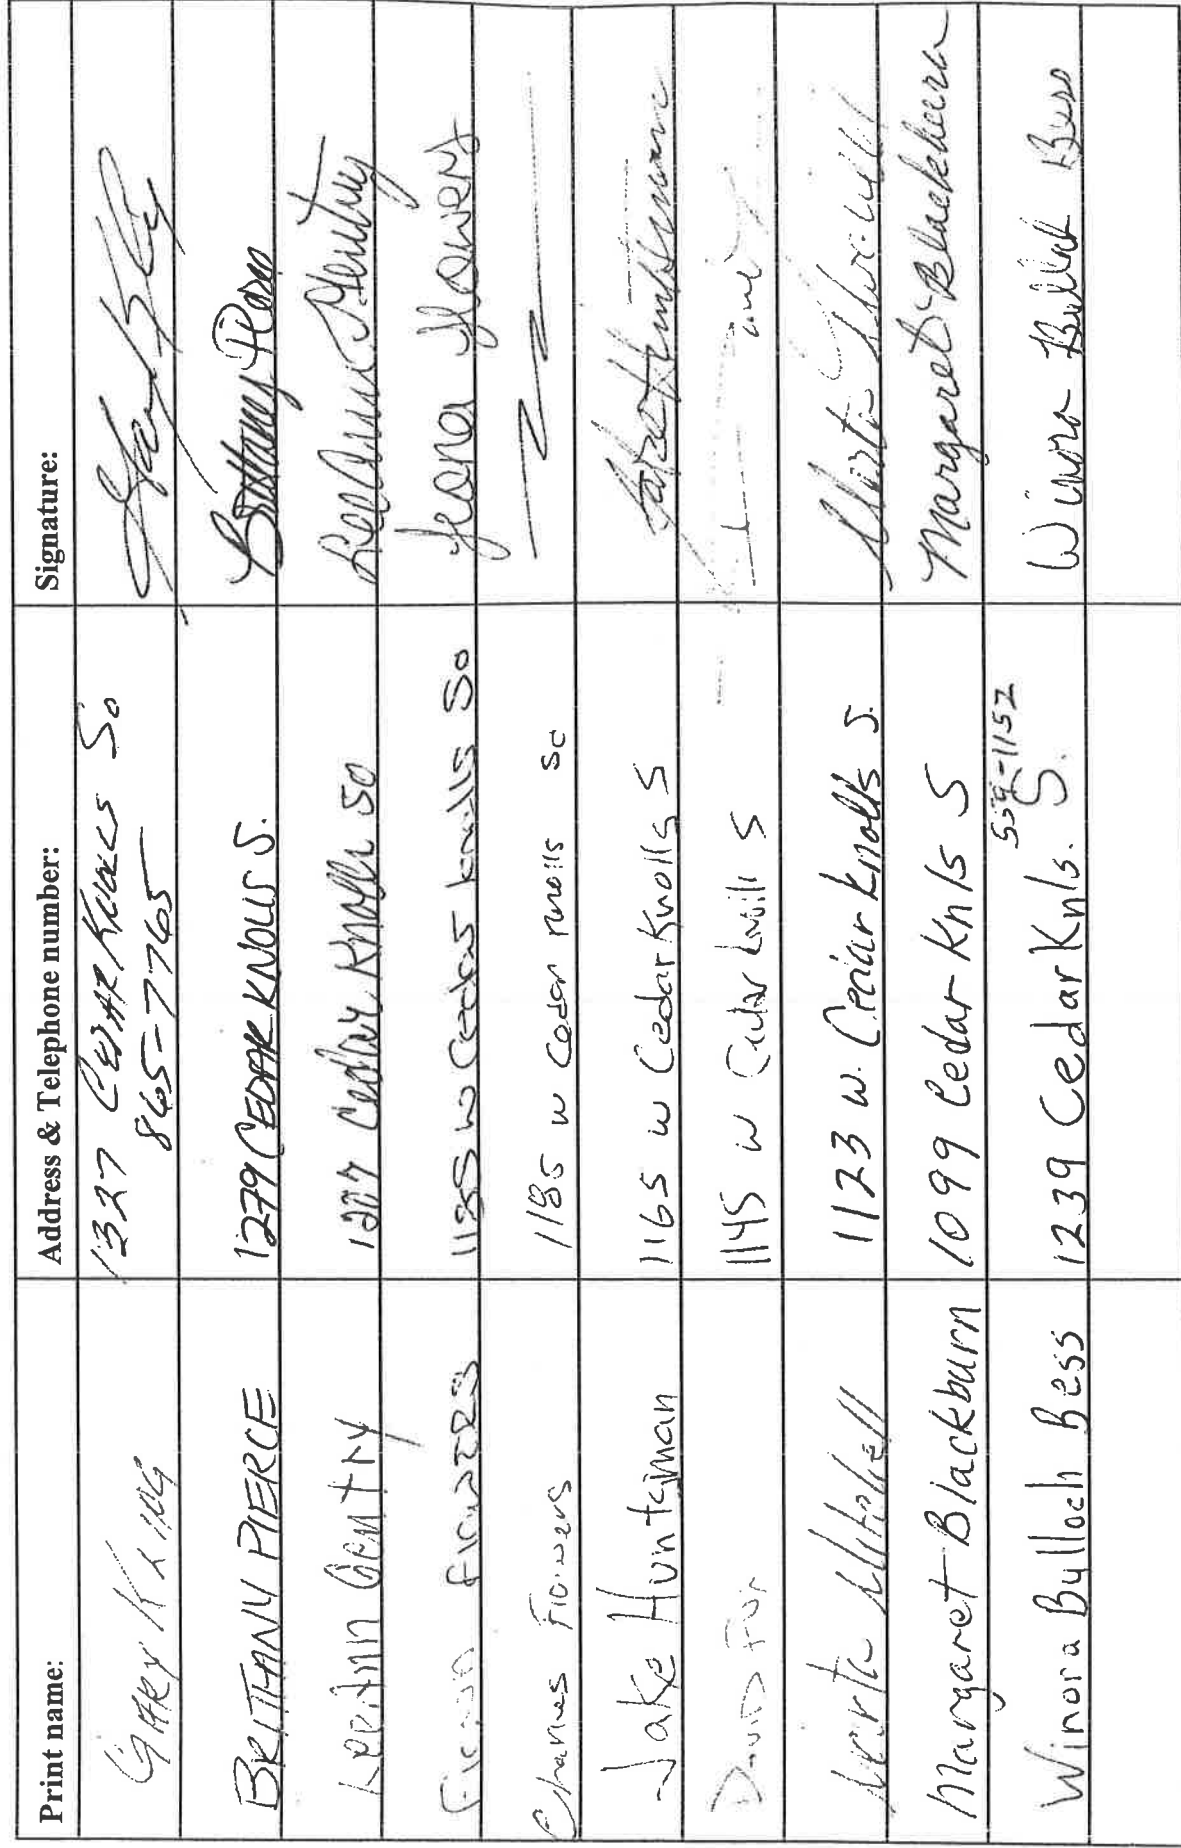 Print name: Address & Telephone number: Signature:
GARY KLING 1327 CEDAR KNOLLS So
865-7765
BRITTANY PIERCE 1279 CEDAR KNOLLS S. Brittany
LeeAnn Gentry 1227 Cedar Knolls SO LeeAnn Gentry
Flowers 1185 W Cedar Knolls So Flowers
Charles Flowers 1185 W Cedar Knolls So
Jake Huntsman 1165 W Cedar Knolls S
David Fox 1145 W Cedar Knolls S
1123 W. Cedar Knolls S.
Margaret Blackburn 1099 Cedar Knls S Margaret Blackburn
559-1152
Winora Bulloch Bess 1239 Cedar Knls. S. Winora Bulloch Bess